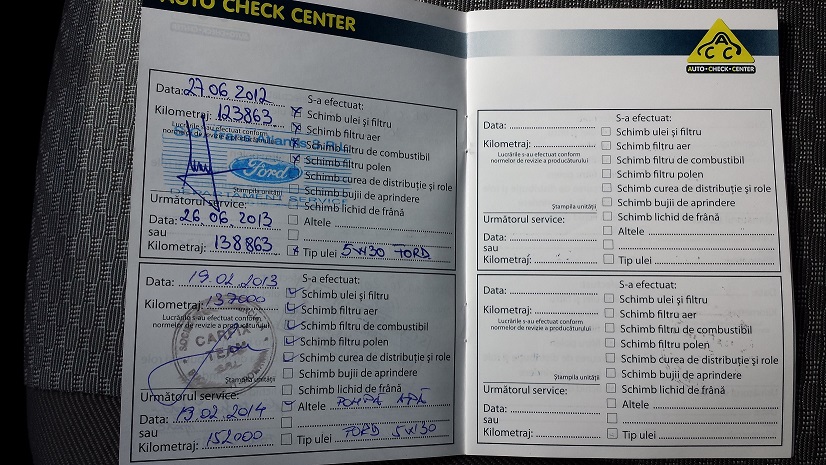 AUTO CHECK CENTER
Data: 27.06.2012
Kilometraj: 123863
Lucrările s-au efectuat conform
normelor de
Ford
DEPARTAMENT SERVICE
Ştampila unităţii
Următorul service:
Data: 26.06.2013
sau
Kilometraj: 138863
S-a efectuat:
Schimb ulei şi filtru
Schimb filtru aer
Schimb filtru de combustibil
Schimb filtru polen
Schimb curea de distribuţie şi role
Schimb bujii de aprindere
Schimb lichid de frână
Altele
Tip ulei 5W30 FORD
Data: 19.02.2013
Kilometraj: 137000
Lucrările s-au efectuat conform
normelor de revizie a producătorului
CARFIX
TEAM
SRL
Ştampila unităţii
Următorul service:
Data: 19.02.2014
sau
Kilometraj: 152000
S-a efectuat:
Schimb ulei şi filtru
Schimb filtru aer
Schimb filtru de combustibil
Schimb filtru polen
Schimb curea de distribuţie şi role
Schimb bujii de aprindere
Schimb lichid de frână
Altele POMPĂ APĂ
Tip ulei FORD 5W30
ACC
AUTO•CHECK•CENTER
Data:
Kilometraj:
Lucrările s-au efectuat conform
normelor de revizie a producătorului
Ştampila unităţii
Următorul service:
Data:
sau
Kilometraj:
S-a efectuat:
Schimb ulei şi filtru
Schimb filtru aer
Schimb filtru de combustibil
Schimb filtru polen
Schimb curea de distribuţie şi role
Schimb bujii de aprindere
Schimb lichid de frână
Altele
Tip ulei
Data:
Kilometraj:
Lucrările s-au efectuat conform
normelor de revizie a producătorului
Ştampila unităţii
Următorul service:
Data:
sau
Kilometraj:
S-a efectuat:
Schimb ulei şi filtru
Schimb filtru aer
Schimb filtru de combustibil
Schimb filtru polen
Schimb curea de distribuţie şi role
Schimb bujii de aprindere
Schimb lichid de frână
Altele
Tip ulei